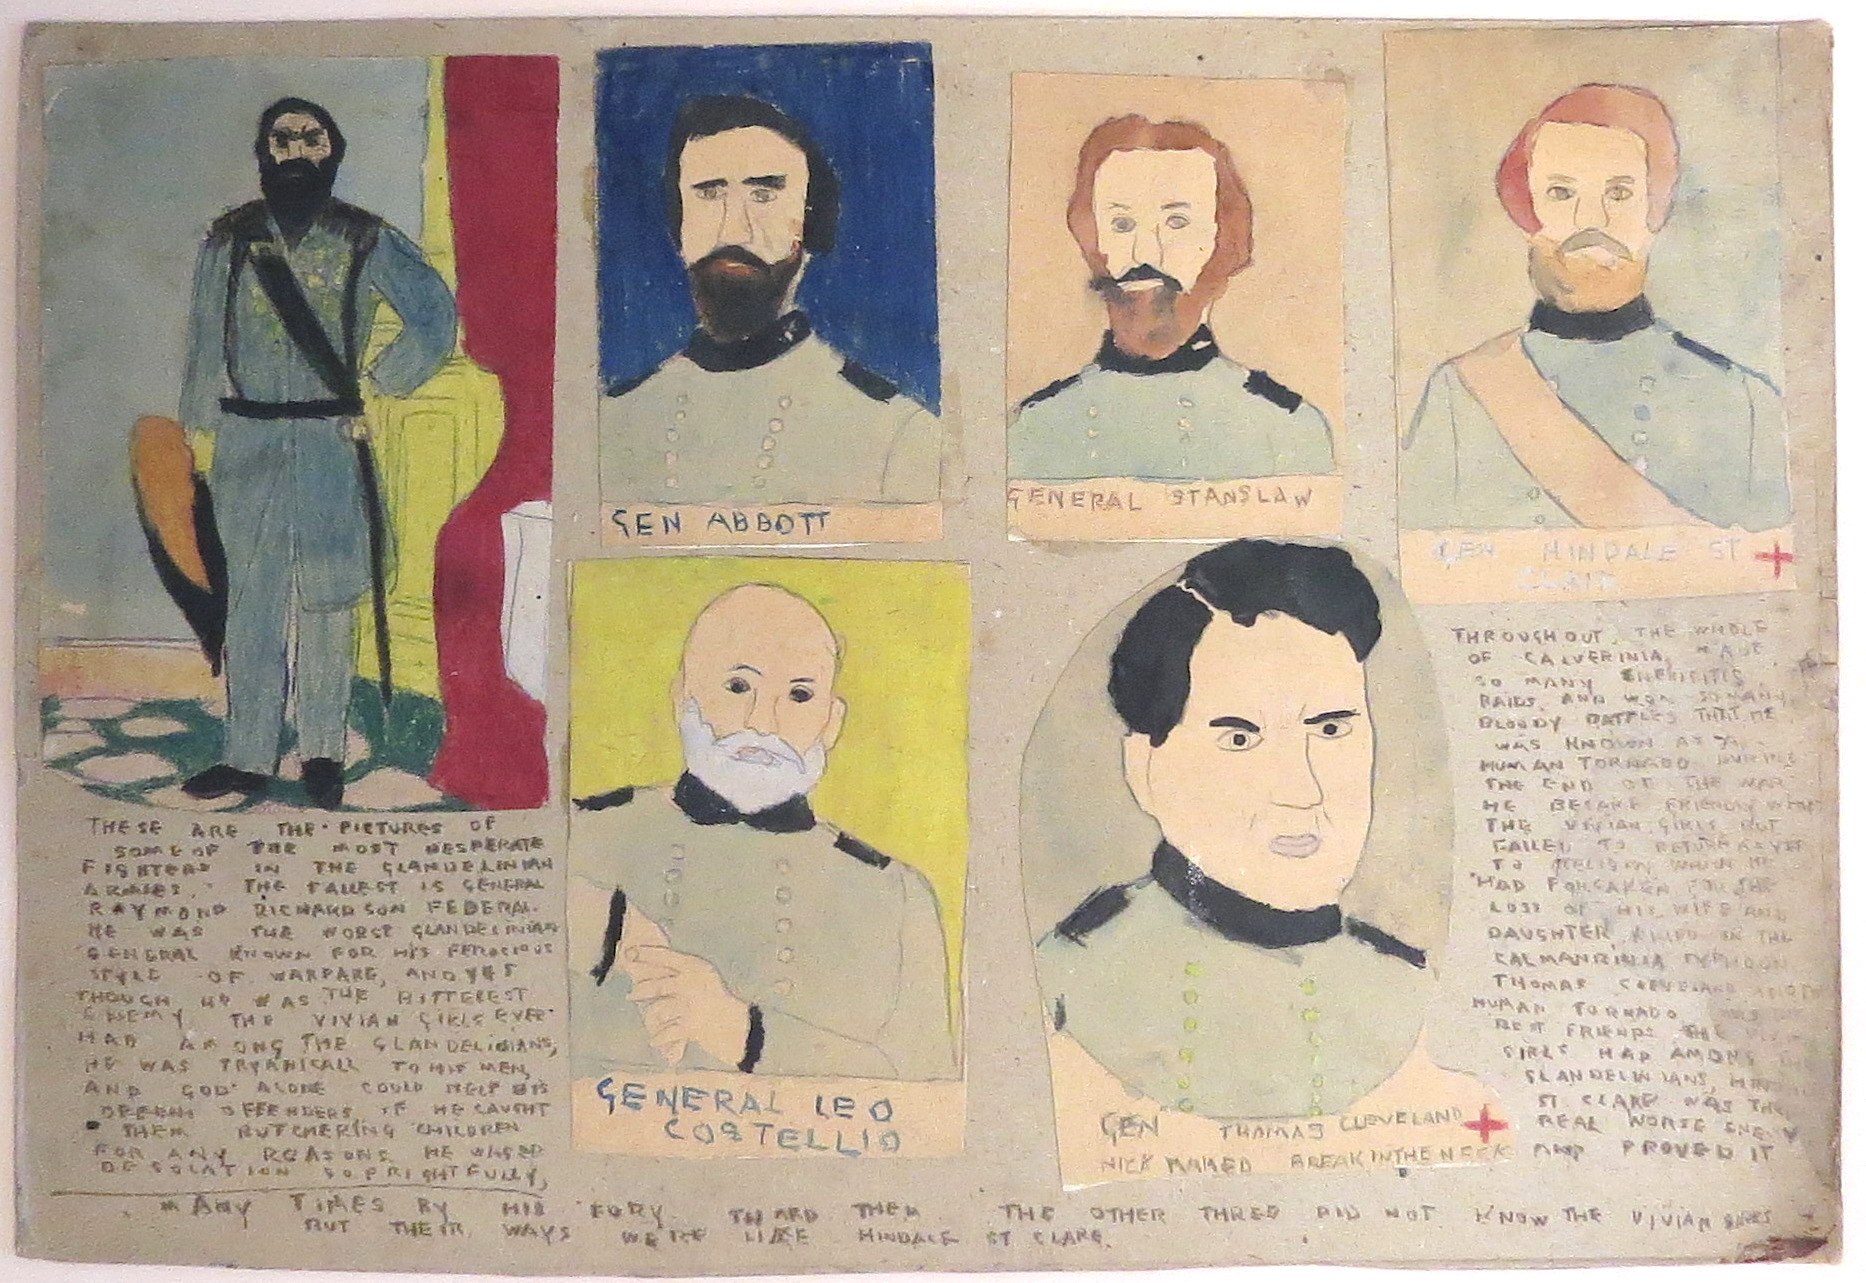 GEN ABBOTT
GENERAL STANSLAW
GEN HINDALE ST
CLAIR
GENERAL LEO
COSTELLIO
GEN THOMAS CLEVELAND
NICK NAMED BREAK IN THE NECK
THESE ARE THE PICTURES OF
SOME OF THE MOST DESPERATE
FIGHTERS IN THE GLANDELINIAN
ARMIES. THE TALLEST IS GENERAL
RAYMOND RICHARDSON FEDERAL.
HE WAS THE WORST GLANDELINIAN
GENERAL KNOWN FOR HIS FEROCIOUS
STYLE OF WARFARE, AND YET
THOUGH HE WAS THE BITTEREST
ENEMY THE VIVIAN GIRLS EVER
HAD AMONG THE GLANDELINIANS,
HE WAS TRYANICALL TO HIS MEN,
AND GOD ALONE COULD HELP HIS
OFFENDERS IF HE CAUGHT
THEM BUTCHERING CHILDREN
FOR ANY REASONS HE WAGED
DESOLATION SO FRIGHTFULLY,
THROUGHOUT THE WHOLE
OF CALVERINIA, MADE
SO MANY
RAIDS AND WON SO MANY
BLOODY BATTLES THAT HE
WAS KNOWN AS A
HUMAN TORNADO
THE END OF THE WAR
HE BECAME FRIENDLY WITH
THE VIVIAN GIRLS BUT
FAILED TO RETURN AS YET
TO RELIGION WHICH HE
HAD FORSAKEN FOR THE
LOSS OF HIS WIFE AND
DAUGHTER, KILLED IN THE
CALMANRINIA TYPHOON
THOMAS CLEVELAND
HUMAN TORNADO WAS
BEST FRIENDS THE
GIRLS HAD AMONG
GLANDELINIANS,
ST CLARE WAS THE
REAL WORSE ENEMY
AND PROVED IT
MANY TIMES BY HIS FURY TWARD THEM THE OTHER THREE DID NOT KNOW THE VIVIAN GIRLS
BUT THEIR WAYS WERE LIKE HINDALE ST CLARE.